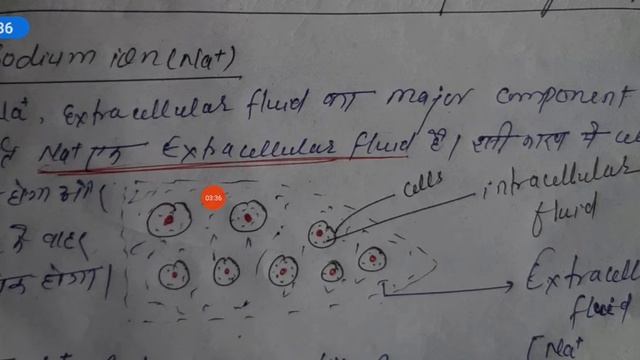 36
Sodium ion (Na⁺)
Na⁺, Extracellular fluid का major component
Na⁺ एक Extracellular fluid है। इसी कारण ये
होगा और
के बाहर
होगा।
03:36
cells
intracellular
fluid
Extracell
fluid
[Na⁺